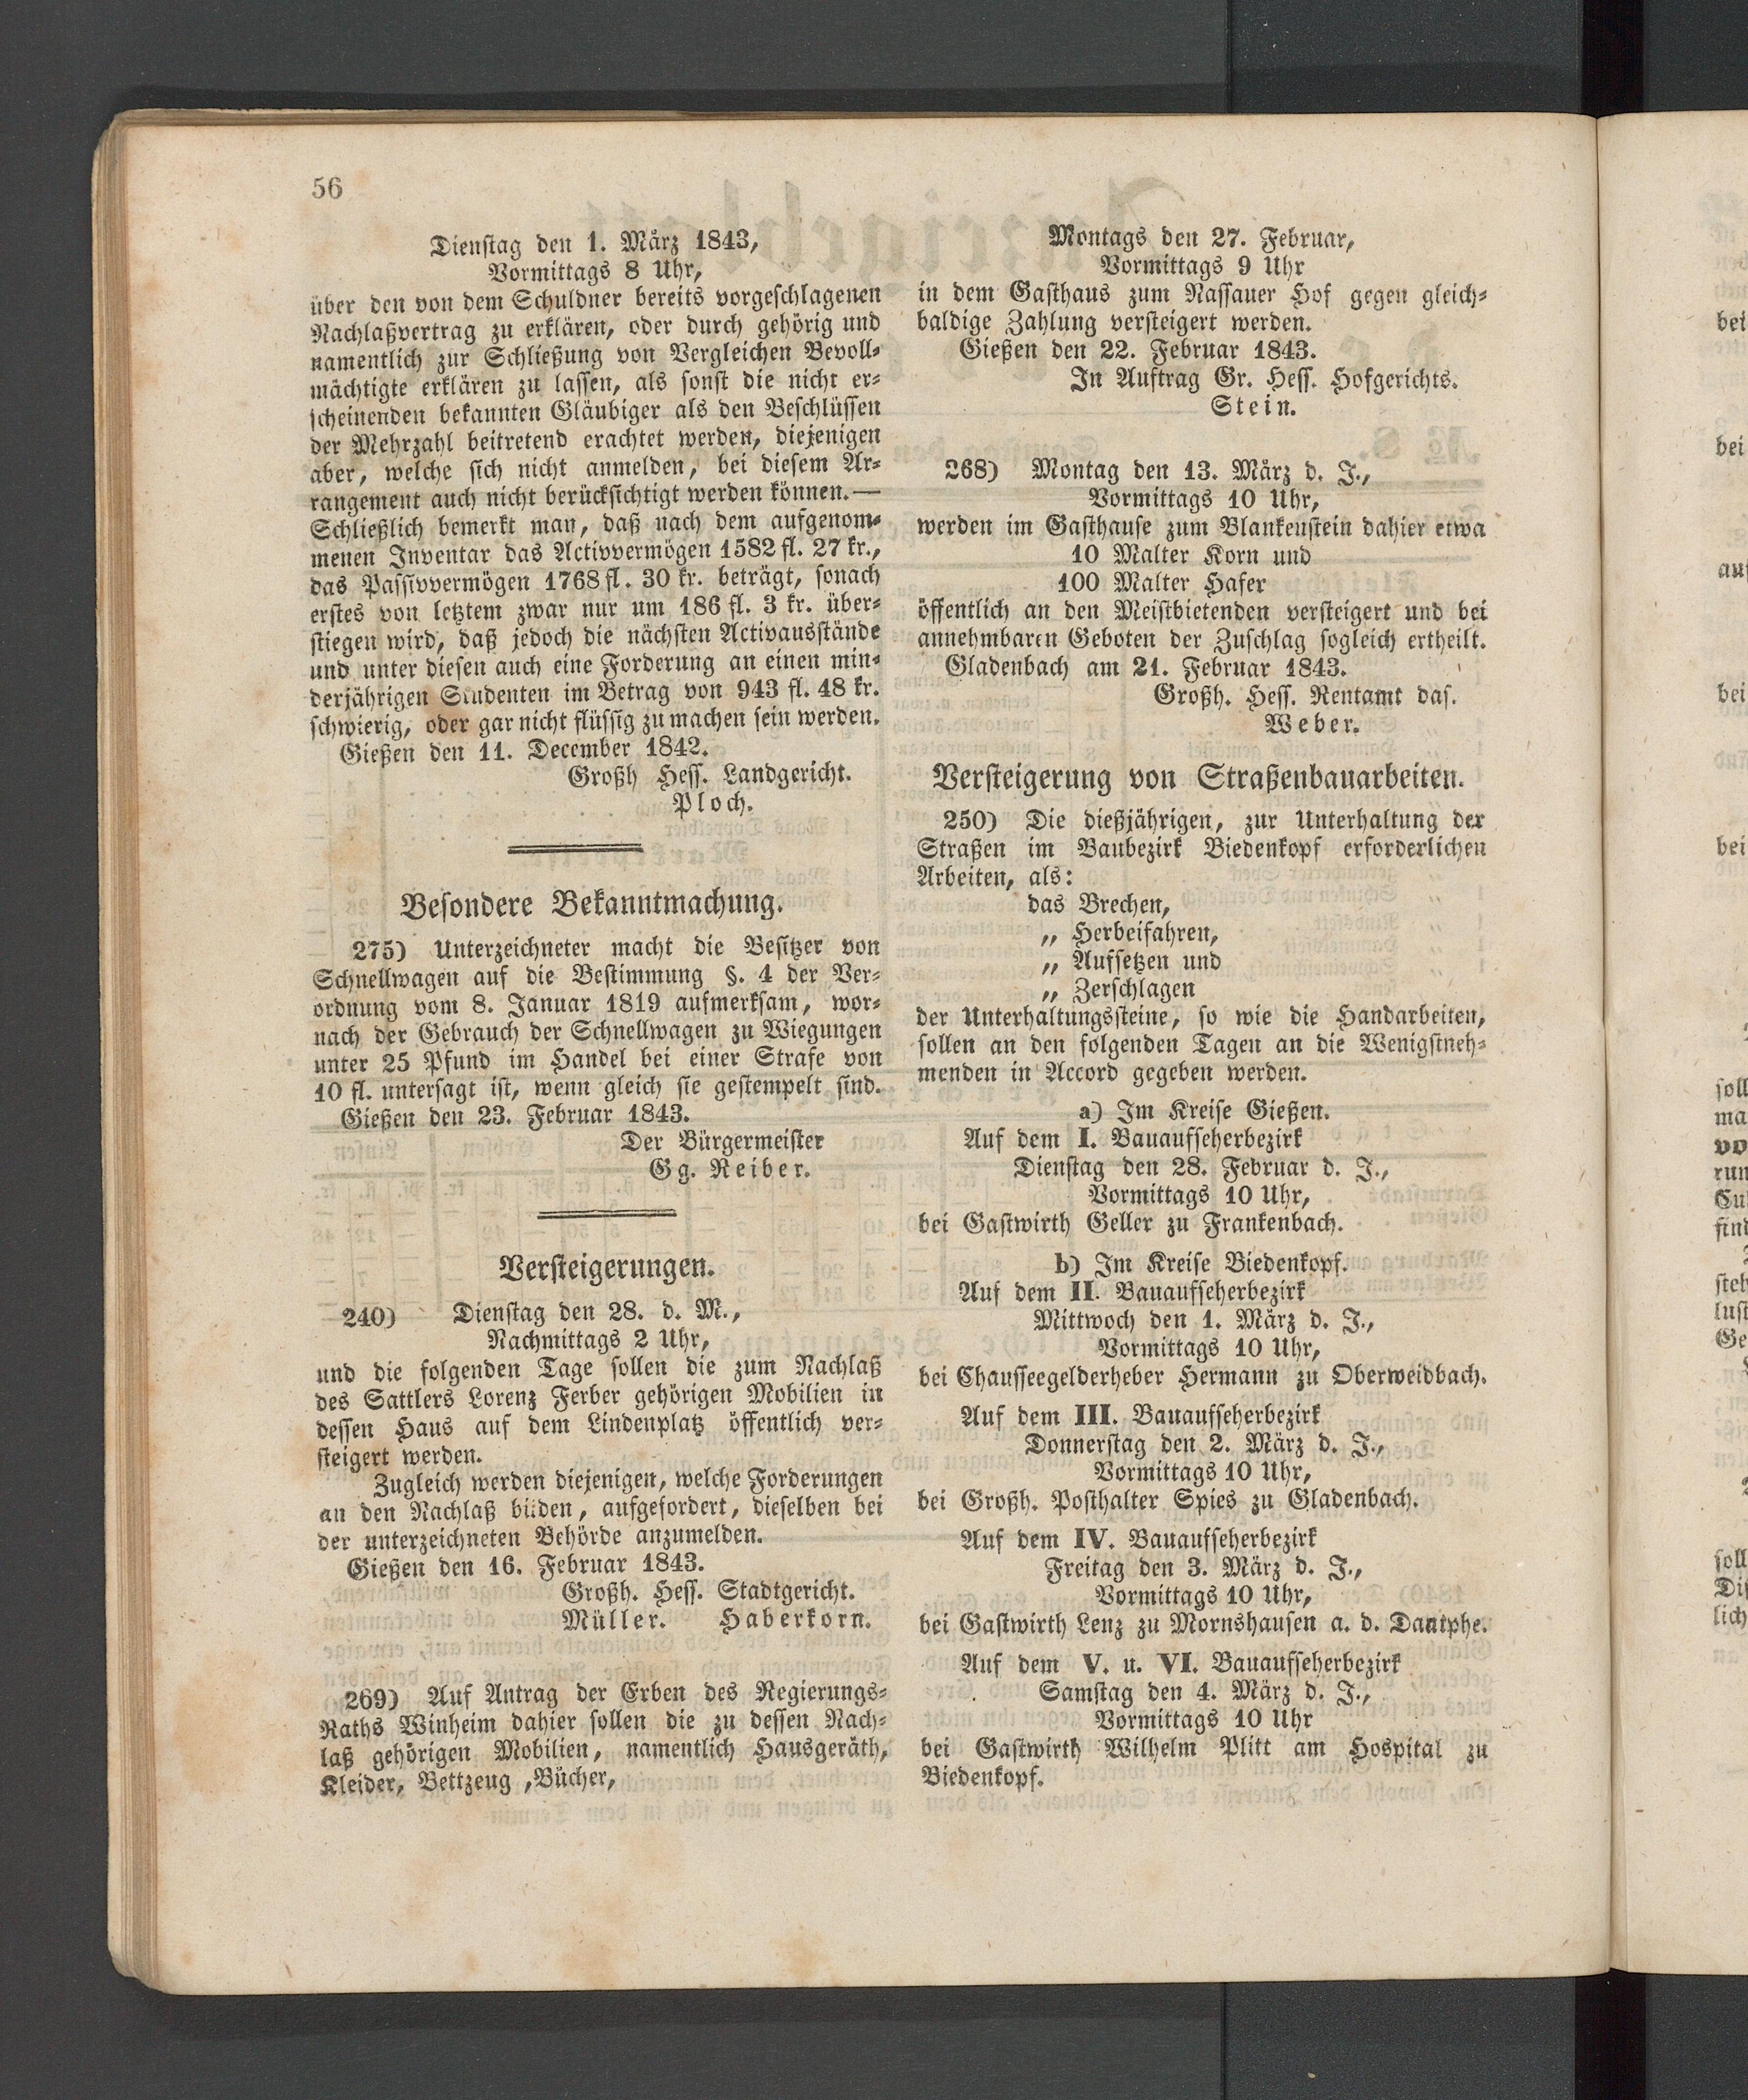 56
Dienstag den 1. März 1843,
Vormittags 8 Uhr,
über den von dem Schuldner bereits vorgeschlagenen
Nachlaßvertrag zu erklären, oder durch gehörig und
namentlich zur Schließung von Vergleichen Bevoll-
mächtigte erklären zu lassen, als sonst die nicht er-
scheinenden bekannten Gläubiger als den Beschlüssen
der Mehrzahl beitretend erachtet werden, diejenigen
aber, welche sich nicht anmelden, bei diesem Ar-
rangement auch nicht berücksichtigt werden können.—
Schließlich bemerkt man, daß nach dem aufgenom-
menen Inventar das Activvermögen 1582 fl. 27 kr.,
das Passivvermögen 1768 fl. 30 kr. beträgt, sonach
erstes von letztem zwar nur um 186 fl. 3 kr. über-
stiegen wird, daß jedoch die nächsten Activausstände
und unter diesen auch eine Forderung an einen min-
derjährigen Studenten im Betrag von 943 fl. 48 kr.
schwierig, oder gar nicht flüssig zu machen sein werden.
Gießen den 11. December 1842.
Großh Hess. Landgericht.
Ploch.
Besondere Bekanntmachung.
275) Unterzeichneter macht die Besitzer von
Schnellwagen auf die Bestimmung §. 4 der Ver-
ordnung vom 8. Januar 1819 aufmerksam, wor-
nach der Gebrauch der Schnellwagen zu Wiegungen
unter 25 Pfund im Handel bei einer Strafe von
10 fl. untersagt ist, wenn gleich sie gestempelt sind.
Gießen den 23. Februar 1843.
Der Bürgermeister
Gg. Reiber.
Versteigerungen.
240) Dienstag den 28. d. M.,
Nachmittags 2 Uhr,
und die folgenden Tage sollen die zum Nachlaß
des Sattlers Lorenz Ferber gehörigen Mobilien in
dessen Haus auf dem Lindenplatz öffentlich ver-
steigert werden.
Zugleich werden diejenigen, welche Forderungen
an den Nachlaß bilden, aufgefordert, dieselben bei
der unterzeichneten Behörde anzumelden.
Gießen den 16. Februar 1843.
Großh. Hess. Stadtgericht.
Müller. Haberkorn.
269) Auf Antrag der Erben des Regierungs-
Raths Winheim dahier sollen die zu dessen Nach-
laß gehörigen Mobilien, namentlich Hausgeräth,
Kleider, Bettzeug ,Bücher,
Montags den 27. Februar,
Vormittags 9 Uhr
in dem Gasthaus zum Nassauer Hof gegen gleich-
baldige Zahlung versteigert werden.
Gießen den 22. Februar 1843.
In Auftrag Gr. Hess. Hofgerichts.
Stein.
268) Montag den 13. März d. J.,
Vormittags 10 Uhr,
werden im Gasthause zum Blankenstein dahier etwa
10 Malter Korn und
100 Malter Hafer
öffentlich an den Meistbietenden versteigert und bei
annehmbaren Geboten der Zuschlag sogleich ertheilt.
Gladenbach am 21. Februar 1843.
Großh. Hess. Rentamt das.
Weber.
Versteigerung von Straßenbauarbeiten.
250) Die dießjährigen, zur Unterhaltung der
Straßen im Baubezirk Biedenkopf erforderlichen
Arbeiten, als:
das Brechen,
„ Herbeifahren,
„ Aufsetzen und
„ Zerschlagen
der Unterhaltungssteine, so wie die Handarbeiten,
sollen an den folgenden Tagen an die Wenigstneh-
menden in Accord gegeben werden.
a) Im Kreise Gießen.
Auf dem I. Bauaufseherbezirk
Dienstag den 28. Februar d. J.,
Vormittags 10 Uhr,
bei Gastwirth Geller zu Frankenbach.
b) Im Kreise Biedenkopf.
Auf dem II. Bauaufseherbezirk
Mittwoch den 1. März d. J.,
Vormittags 10 Uhr,
bei Chausseegelderheber Hermann zu Oberweidbach.
Auf dem III. Bauaufseherbezirk
Donnerstag den 2. März d. J.,
Vormittags 10 Uhr,
bei Großh. Posthalter Spies zu Gladenbach.
Auf dem IV. Bauaufseherbezirk
Freitag den 3. März d. J.,
Vormittags 10 Uhr,
bei Gastwirth Lenz zu Mornshausen a. d. Dautphe.
Auf dem V. u. VI. Bauaufseherbezirk
Samstag den 4. März d. J.,
Vormittags 10 Uhr
bei Gastwirth Wilhelm Plitt am Hospital zu
Biedenkopf.